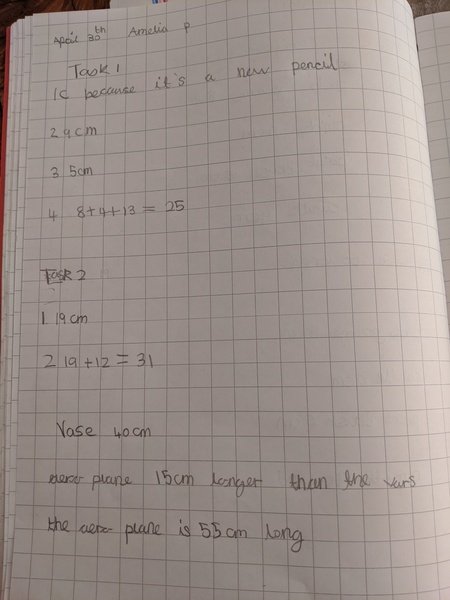 April 30th Amelia P
Task 1
1C because it's a new pencil
2 9cm
3 5cm
4 8+4+13 = 25
Task 2
1. 19cm
2 19+12 = 31
Vase 40cm
aero plane 15cm longer than the vars
the aero plane is 55cm long